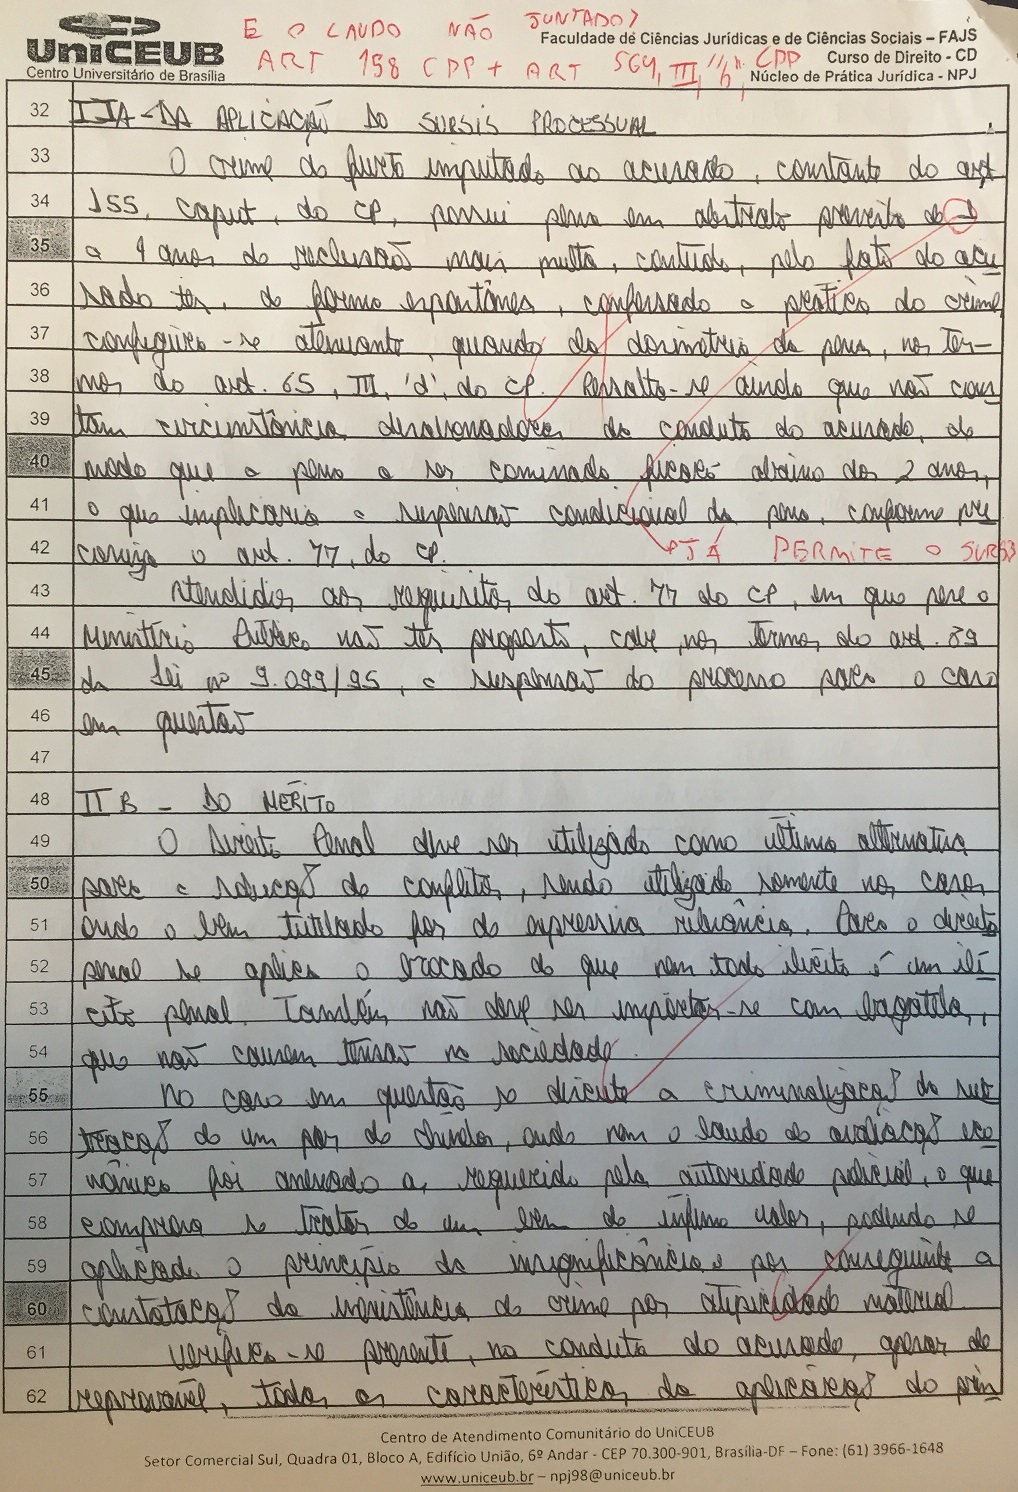 E O LAUDO NÃO JUNTADO?
ART 158 CPP + ART 564, III, "b", CPP
UniCEUB
Centro Universitário de Brasília
Faculdade de Ciências Jurídicas e de Ciências Sociais – FAJS
Curso de Direito - CD
Núcleo de Prática Jurídica - NPJ
32 IIA - DA APLICAÇÃO DO SURSIS PROCESSUAL
33 O crime de furto imputado ao acusado, constante do art
34 155, caput, do CP, possui pena em abstrato prevista de 1
35 a 4 anos de reclusão mais multa, contudo, pelo fato do acu
36 sado ter, de forma espontânea, confessado a prática do crime
37 configura-se atenuante, quando da dosimetria da pena, nos ter-
38 mos do art. 65, III, 'd', do CP. Ressalta-se ainda que não cons
39 tam circunstâncias desabonadoras da conduta do acusado, de
40 modo que a pena a ser cominada ficará abaixo dos 2 anos,
41 o que implicaria a suspensão condicional da pena, conforme pre
42 coniza o art. 77, do CP. JÁ PERMITE O SURSIS
43 Atendidos aos requisitos do art. 77 do CP, em que pese o
44 Ministério Público não ter proposto, cabe, nos termos do art. 89
45 da Lei nº 9.099/95, a suspensão do processo para o caso
46 em questão
47
48 II B - DO MÉRITO
49 O Direito Penal deve ser utilizado como última alternativa
50 para a solução de conflitos, sendo utilizado somente nos casos
51 onde o bem tutilado for de expressiva relevância. Para o direito
52 penal se aplica o brocado de que nem todo ilícito é um ilí
53 cito penal. Também não deve ser importar-se com bagatelas,
54 que não causem tensão na sociedade.
55 No caso em questão se discute a criminalização da sub
56 tração de um par de chinelos, onde nem o laudo de avaliação eco
57 nômica foi anexado a, requerido pela autoridade policial, o que
58 comprova se tratar de um bem de ínfimo valor, podendo se
59 aplicado o princípio da insignificância e por conseguinte a
60 constatação da inexistência de crime por atipicidade material.
61 Verifica-se presente, na conduta do acusado, apesar de
62 reprovável, todas as características da aplicação do prin
Centro de Atendimento Comunitário do UniCEUB
Setor Comercial Sul, Quadra 01, Bloco A, Edifício União, 6º Andar - CEP 70.300-901, Brasília-DF – Fone: (61) 3966-1648
www.uniceub.br – npj98@uniceub.br